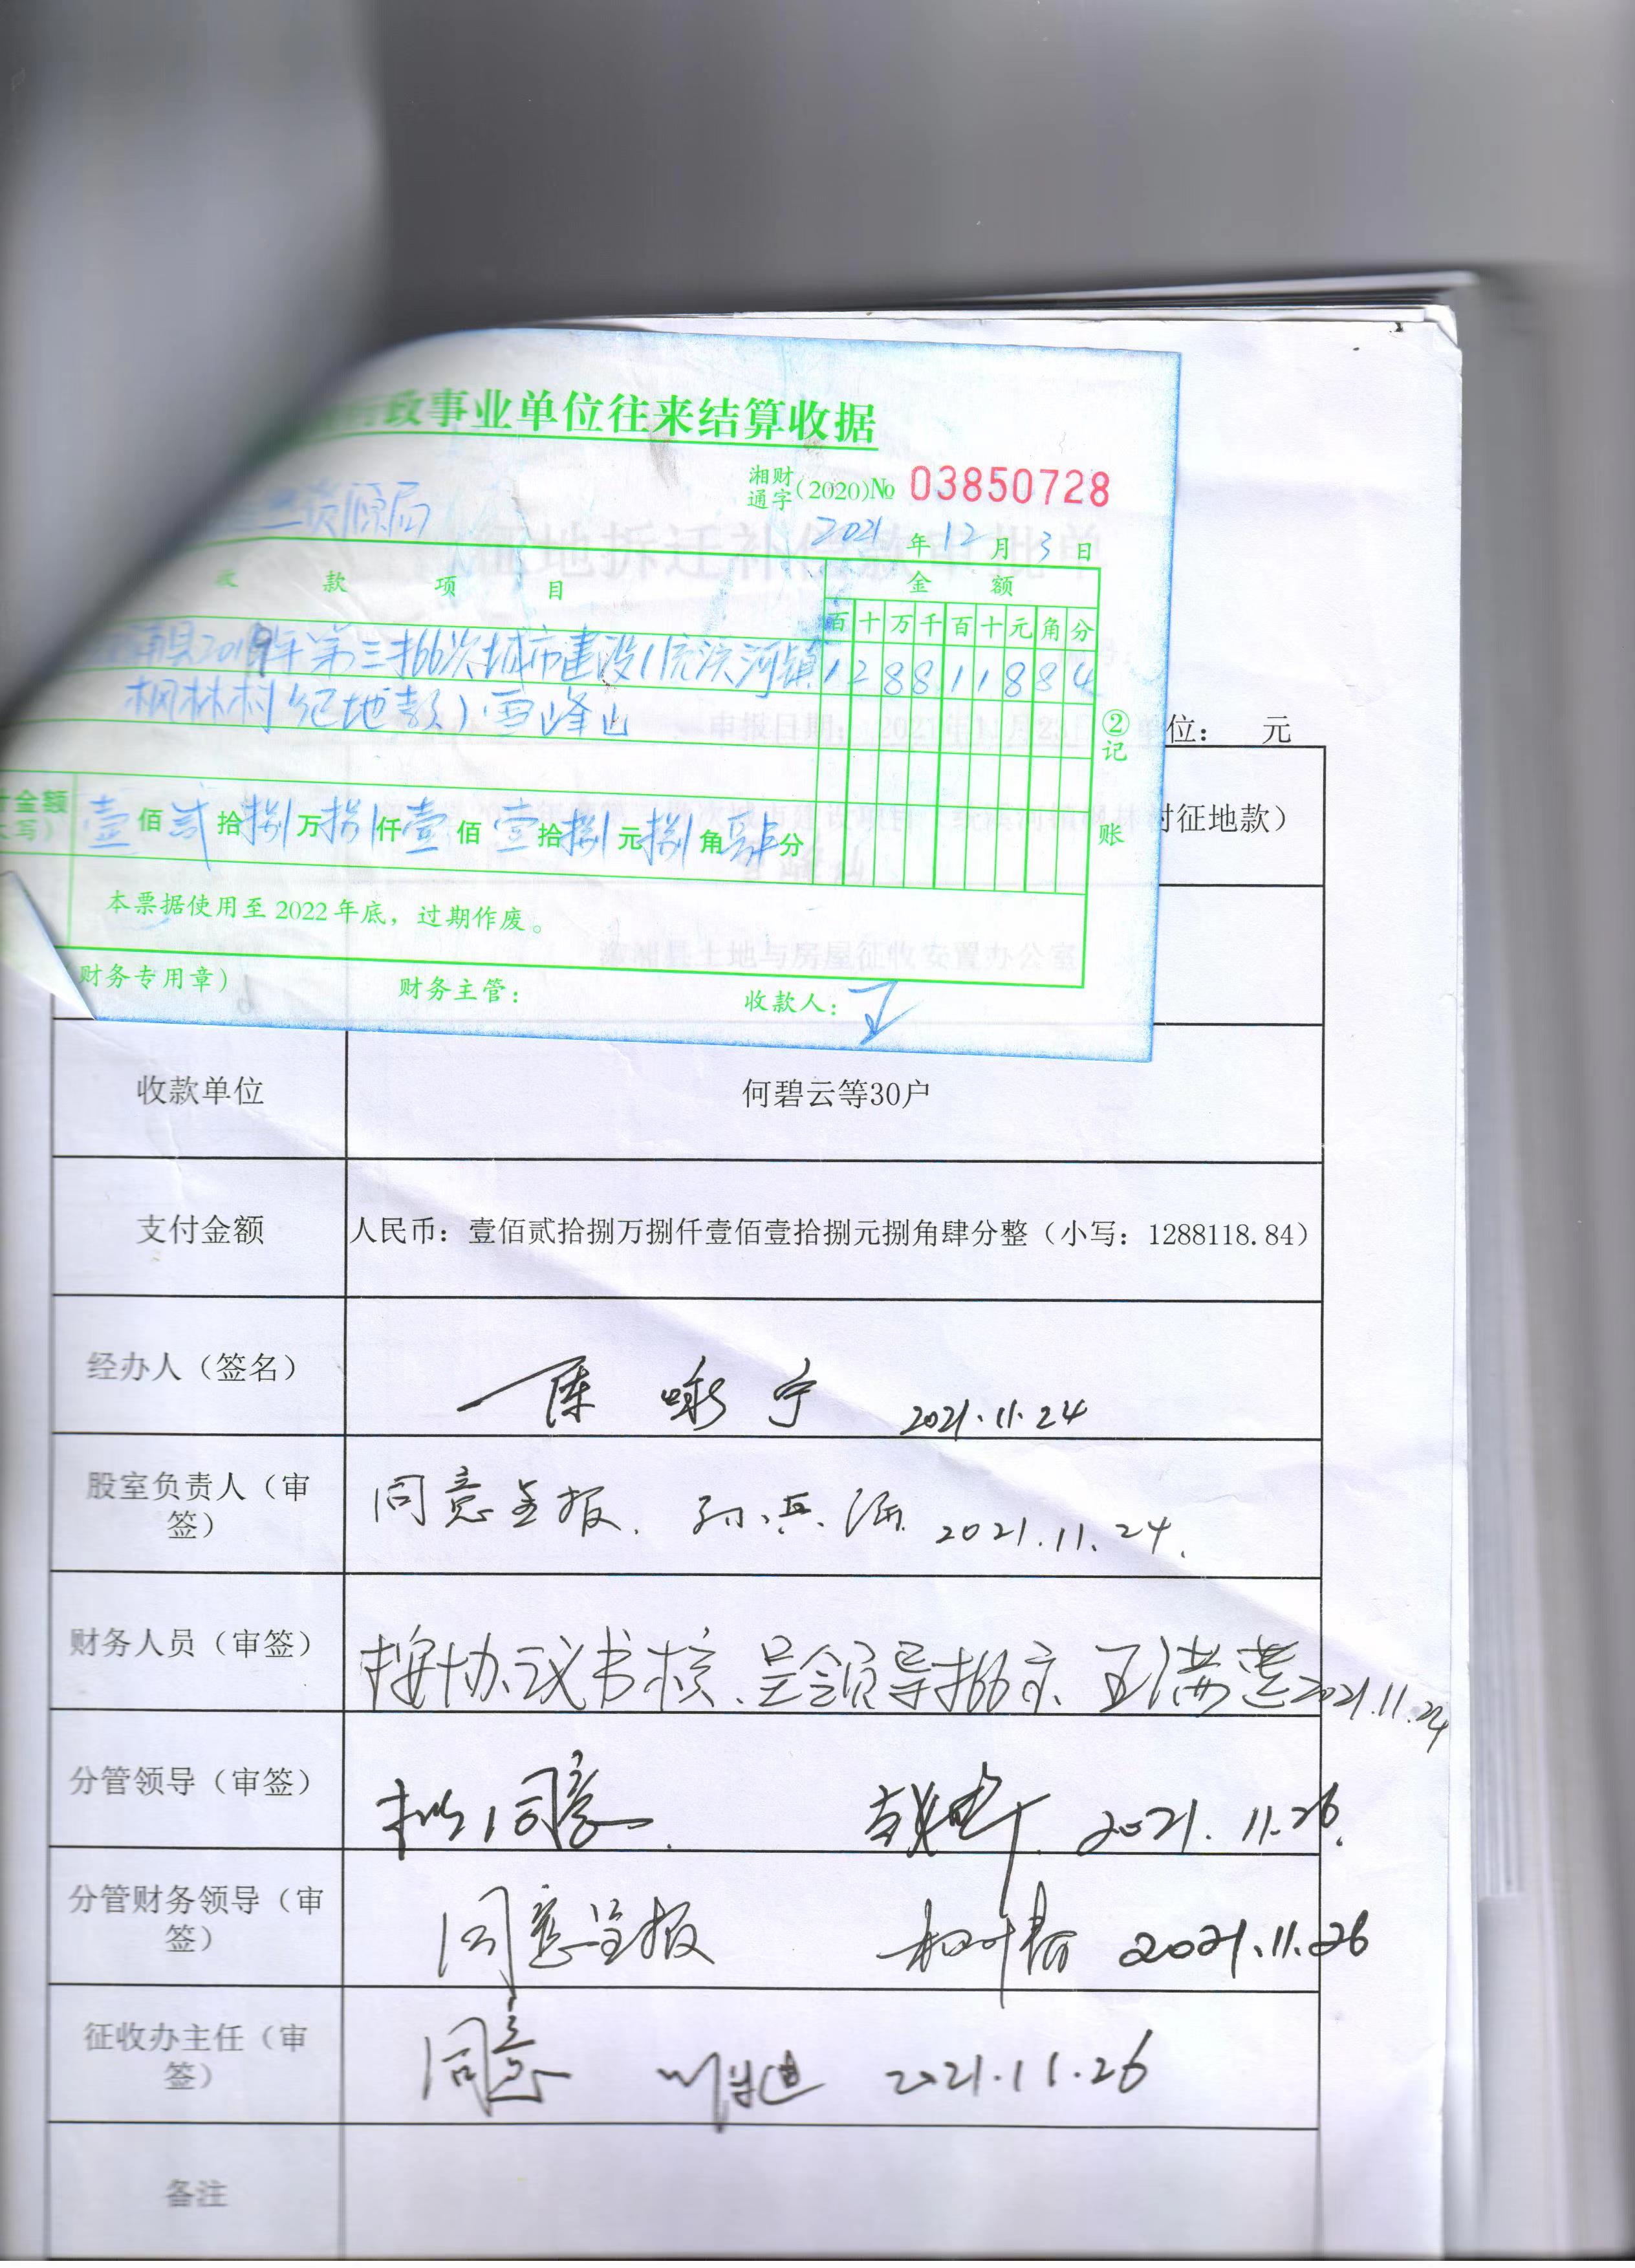 行政事业单位往来结算收据
湘财
通字(2020)№ 03850728
资源局
征地拆迁补偿款审批单
2021年12月3日
收款项目 金额
百十万千百十元角分
县2019年第三批次城市建设(
河镇 128811884
枫林村征地款)雪峰山
申报日期: 2021年11月23
单位: 元
②记账
村征地款)
金额
写) 壹佰贰拾捌万捌仟壹佰壹拾捌元捌角肆分
本票据使用至2022年底,过期作废。
溆浦县土地与房屋征收安置办公室
财务专用章) 财务主管: 收款人:
收款单位 何碧云等30户
支付金额 人民币:壹佰贰拾捌万捌仟壹佰壹拾捌元捌角肆分整(小写:1288118.84)
经办人(签名) 2021.11.24
股室负责人(审签) 同意呈报. 2021.11.24.
财务人员(审签) 按协议书核、呈领导批示、王满莲2021.11.24
分管领导(审签) 拟同意. 2021.11.26.
分管财务领导(审签) 同意呈报 2021.11.26
征收办主任(审签) 同意 2021.11.26
备注